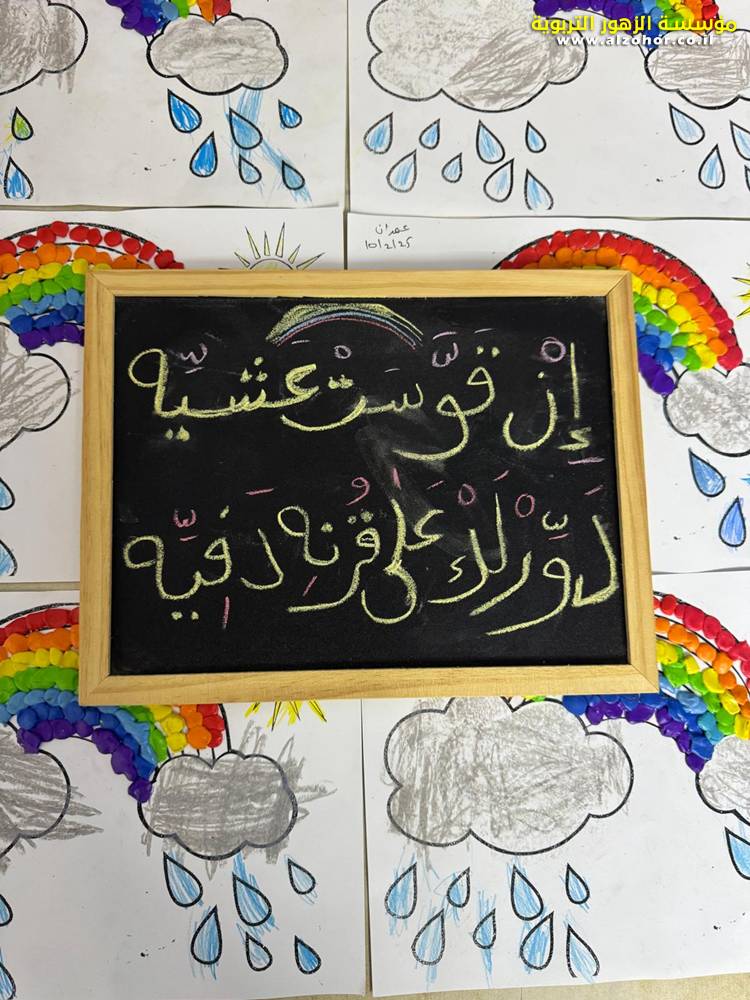 مؤسسة الزهور التربوية
www.alzohor.co.il
عمران
10/2/25
إِنْ قَوَّسَتْ عشيِّه
دَوِّرْ لَكْ عَلى قُرْنِه دَفِيِّه